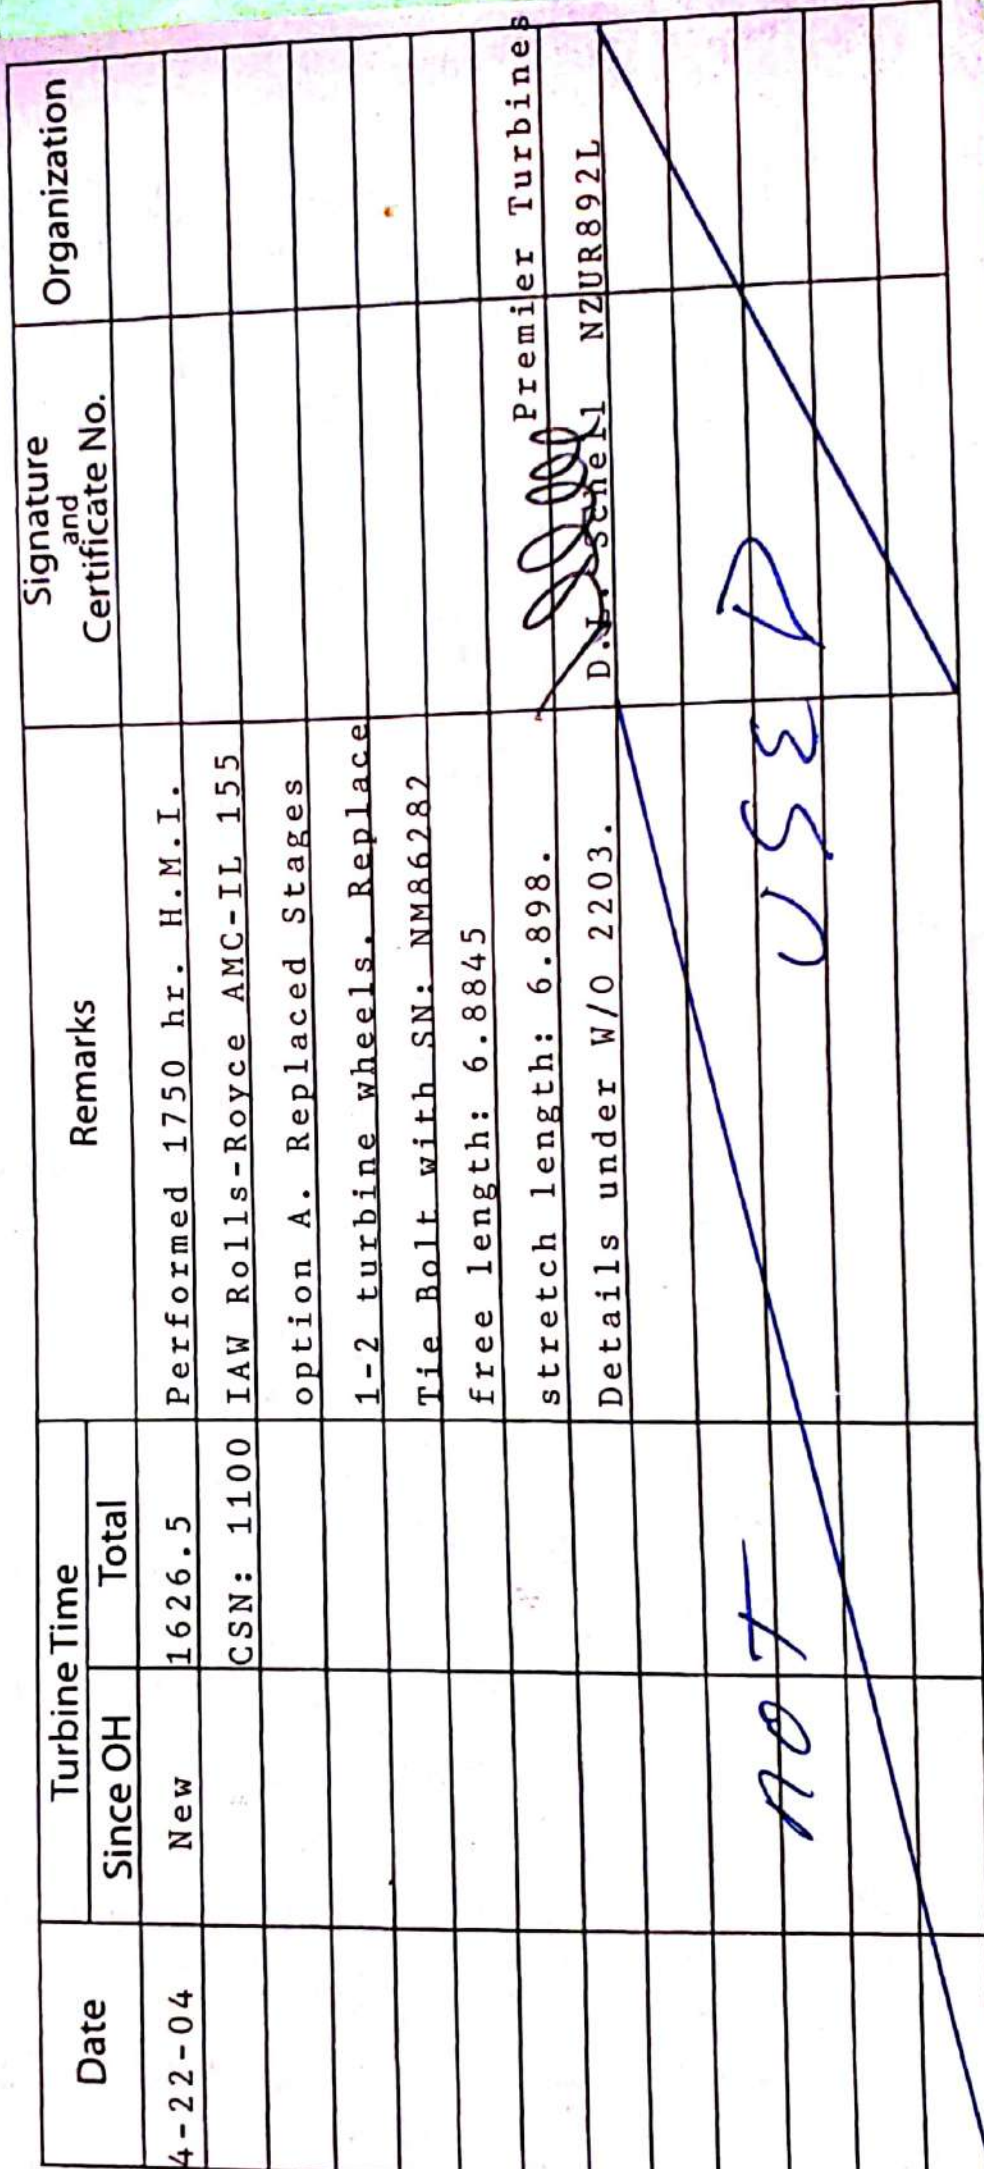 Date
Turbine Time
Since OH
Total
Remarks
Signature
and
Certificate No.
Organization
4-22-04 New 1626.5 Performed 1750 hr. H.M.I.
CSN: 1100 IAW Rolls-Royce AMC-IL 155
option A. Replaced Stages
1-2 turbine wheels. Replace
Tie Bolt with SN: NM86282
free length: 6.8845
stretch length: 6.898. Premier Turbines
Details under W/O 2203. D.L. Schell NZUR892L
not USED